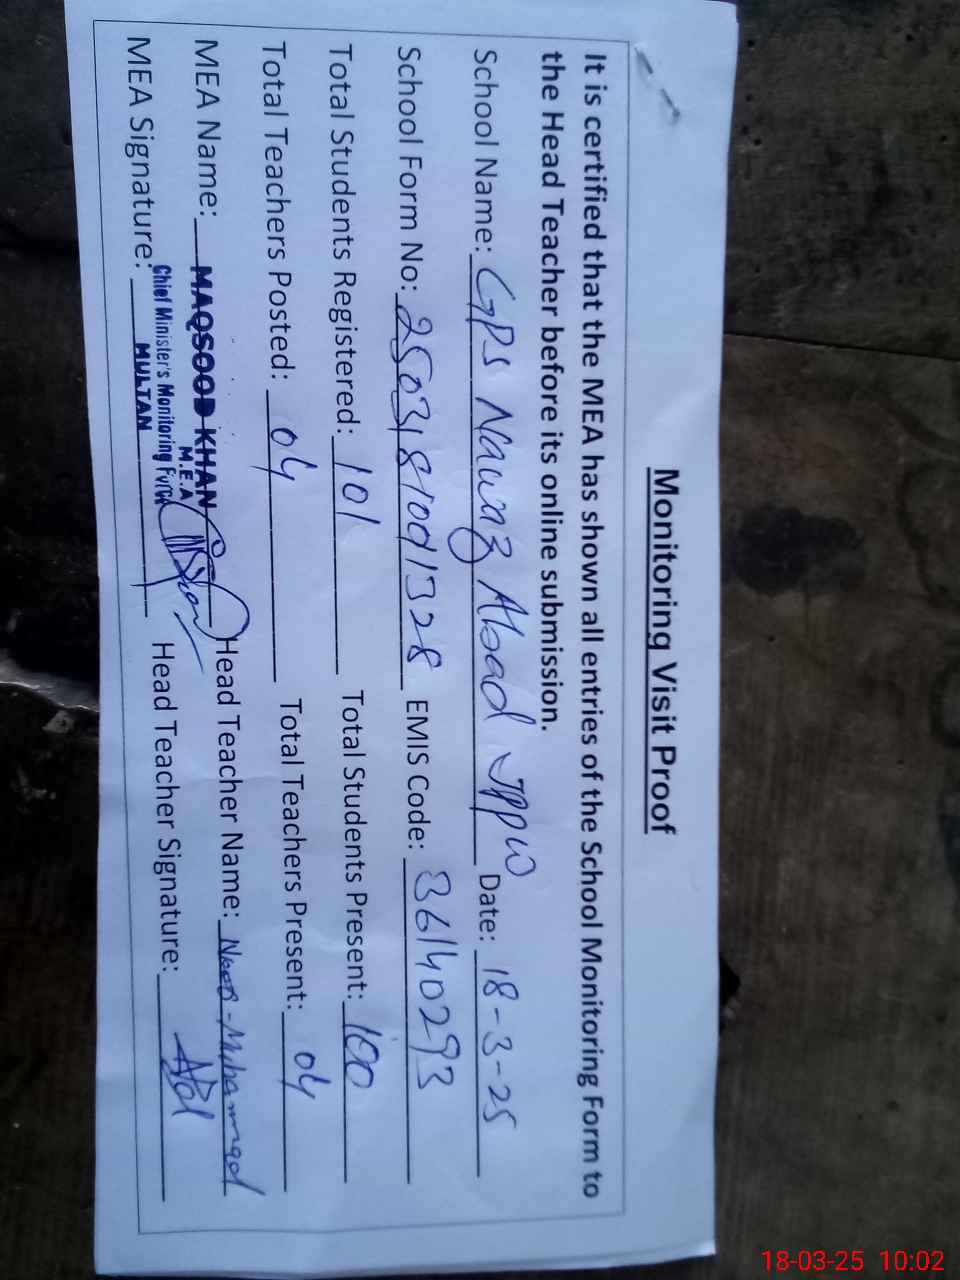 Monitoring Visit Proof
It is certified that the MEA has shown all entries of the School Monitoring Form to
the Head Teacher before its online submission.
School Name: GPS Nawaz Abad JPPW Date: 18-3-25
School Form No: 2503181001328 EMIS Code: 36140293
Total Students Registered: 101 Total Students Present: 100
Total Teachers Posted: 04 Total Teachers Present: 04
MEA Name: MAQSOOD KHAN Head Teacher Name: Muhammad
M.E.A
Chief Minister's Monitoring Force
MEA Signature: MULTAN Head Teacher Signature:
18-03-25 10:02